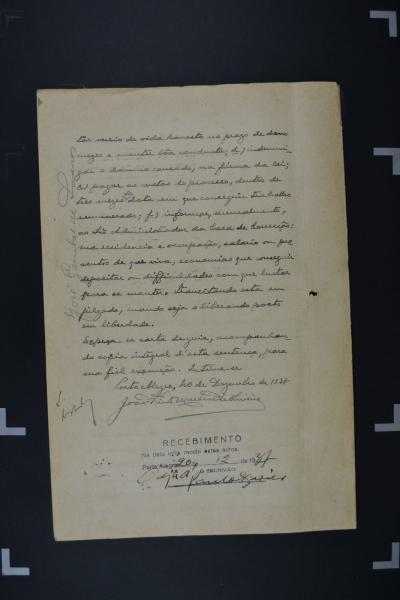 ter meio de vida honesto no prazo de dous
mezes e manter bôa conducta; d) indemni-
zar o damno causado, na fórma da lei;
e) pagar as custas do processo, dentro de
tres mezes da data em que conseguir trabalho
remunerado; f) informar, mensalmente,
ao Sr. Administrador da Casa de Correcção:
sua residencia e occupação, salario ou pro-
ventos de que viva, economias que conseguir
depositar ou difficuldades com que luctar
para se manter. Transitando esta em
julgado, mando seja o liberando posto
em liberdade.
Expeça-se carta de guia, acompanha-
da copia integral d'esta sentença, para
sua fiel execução. Intime-se.
Porto Alegre, 20 de Dezembro de 193
João
RECEBIMENTO
Na data infra recebi estes autos.
Porto Alegre, 20 12 de 193
O ESCRIVÃO